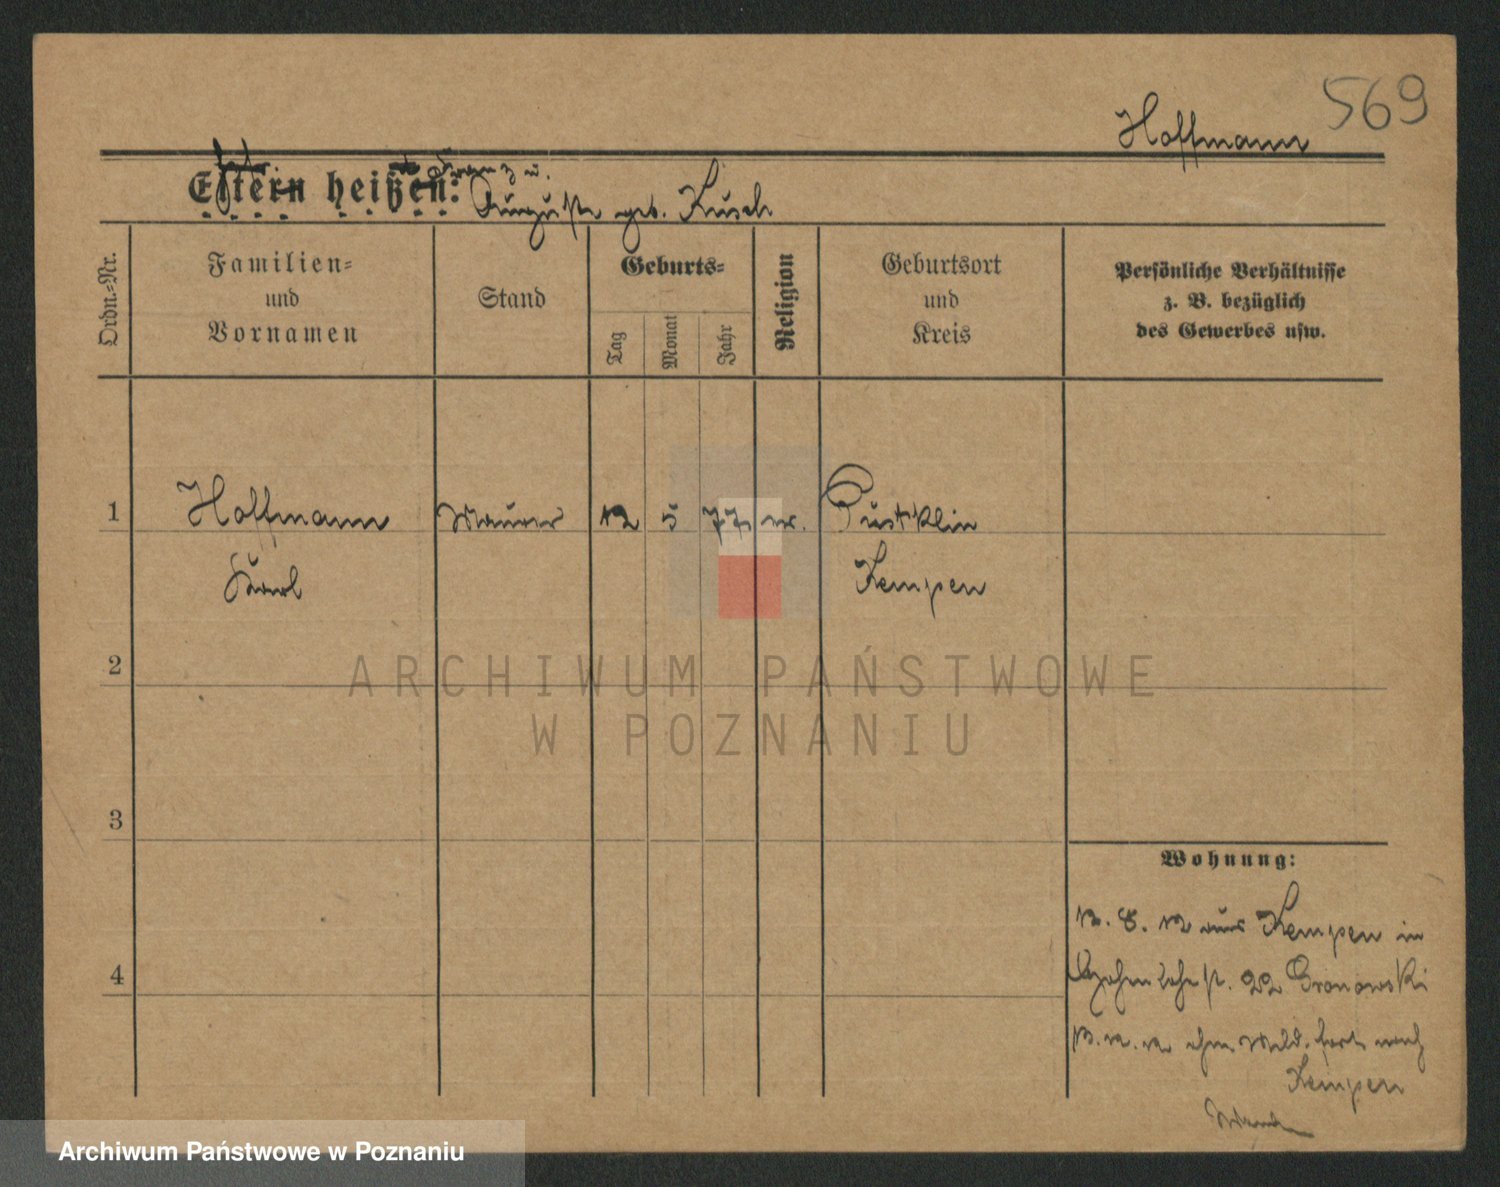 569
Hoffmann
Eltern heißen: Franz u.
Auguste geb. Kusch
Ordn.-Nr.
Familien-
und
Vornamen
Stand
Geburts-
Tag
Monat
Jahr
Religion
Geburtsort
und
Kreis
Persönliche Verhältnisse
z. B. bezüglich
des Gewerbes usw.
1
Hoffmann Maurer 12 5 77 ev. Pustklin
Karl Kempen
2
3
4
Wohnung:
8. 12 aus Kempen in
22 Gronowski
ohne Meld. fort nach
Kempen
ARCHIWUM PAŃSTWOWE
W POZNANIU
Archiwum Państwowe w Poznaniu